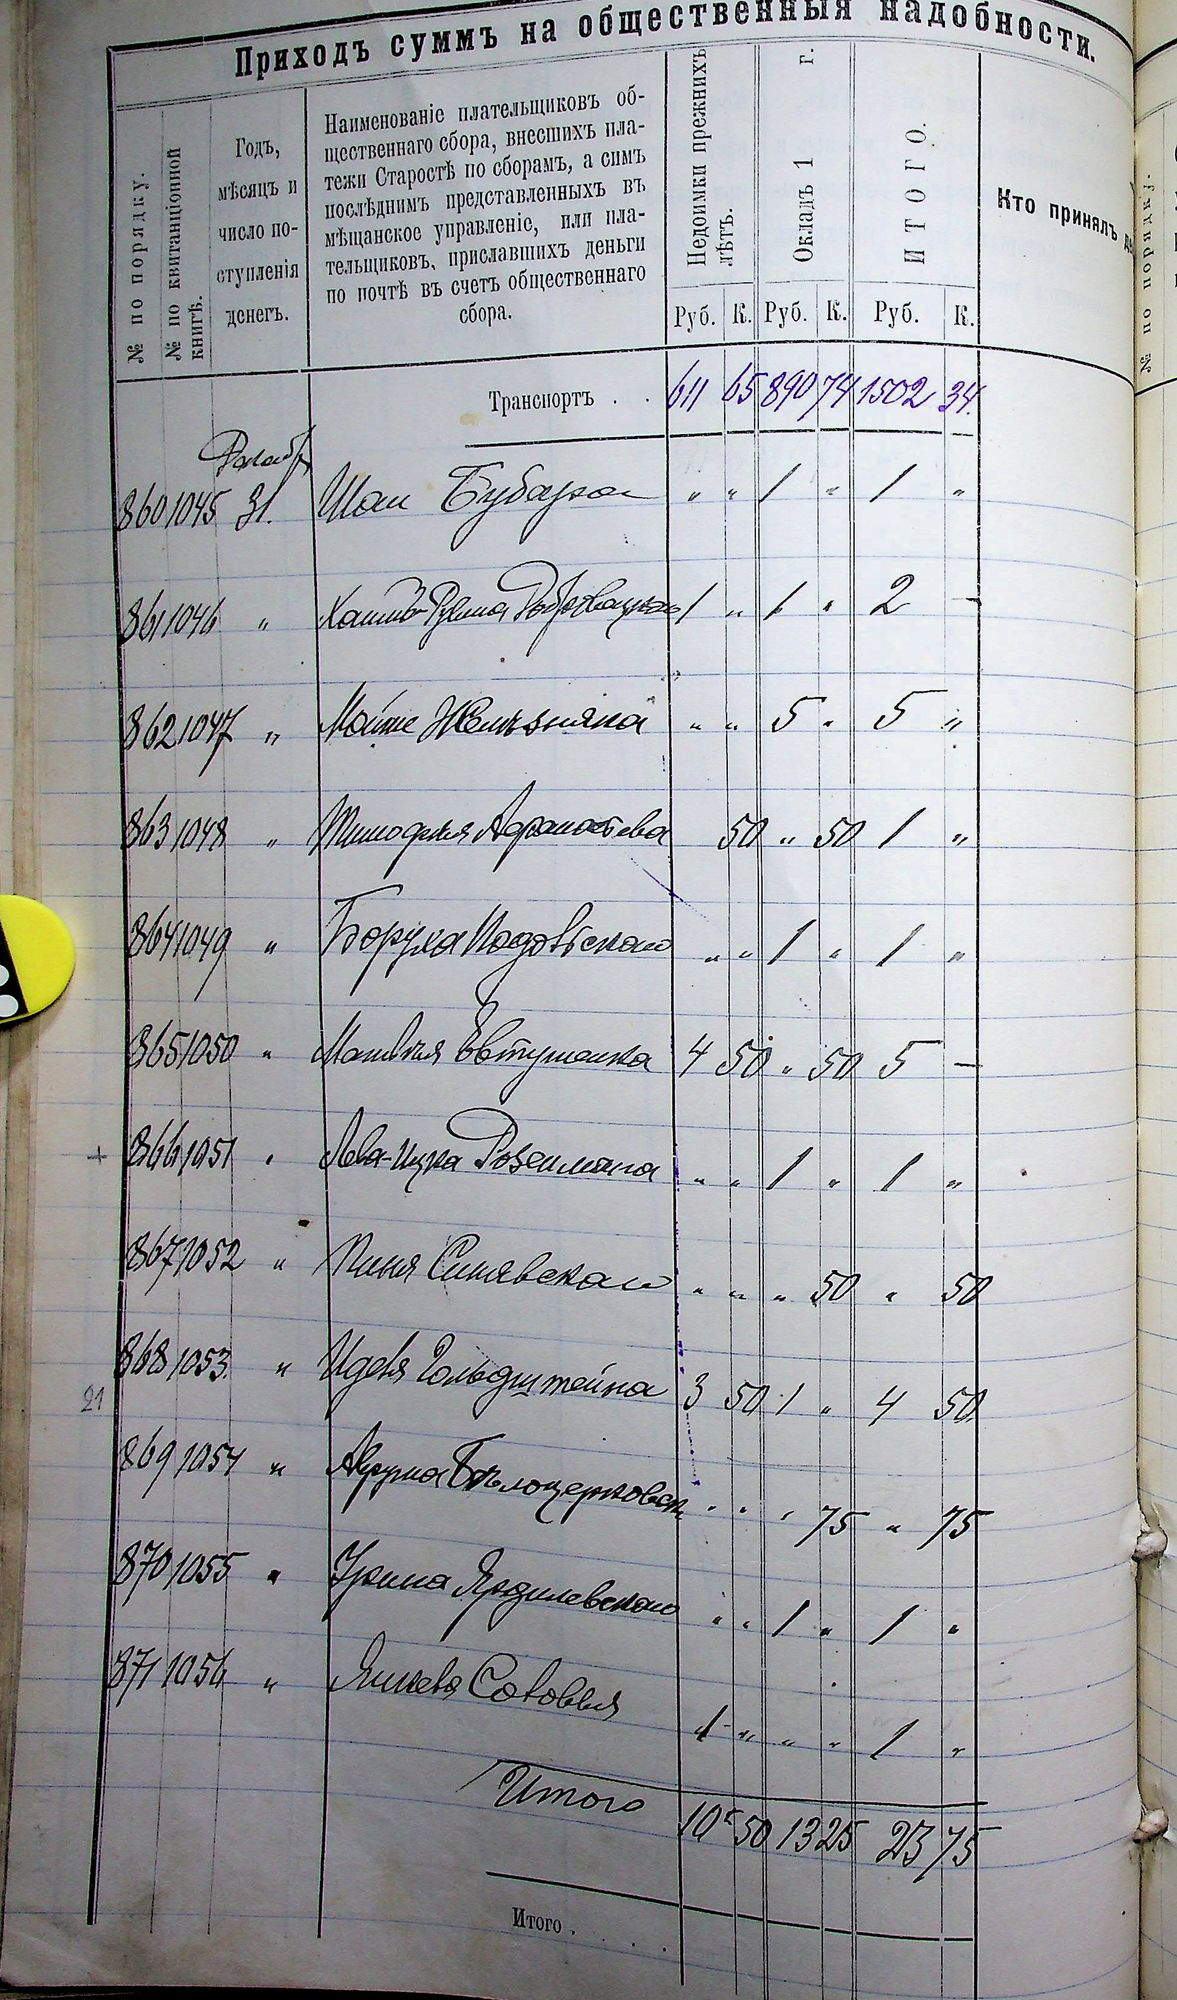 Приходъ суммъ на общественныя надобности.
№ по порядку.
№ по квитанціонной книгѣ.
Годъ,
мѣсяцъ и
число по-
ступленія
денегъ.
Наименованіе плательщиковъ об-
щественнаго сбора, внесшихъ пла-
тежи Старостѣ по сборамъ, а симъ
послѣднимъ представленныхъ въ
мѣщанское управленіе, или пла-
тельщиковъ, приславшихъ деньги
по почтѣ въ счетъ общественнаго
сбора.
Недоимки прежнихъ лѣтъ.
Окладъ 1 г.
ИТОГО.
Кто принялъ
Руб. К. Руб. К. Руб. К.
Транспортъ . . 611 65 890 74 1502 34.
860 1045 31. " " 1 " 1 "
861 1046 " 1 " 1 " 2 —
862 1047 " " " 5 " 5 "
863 1048 " Тимофея Афанасьева 50 " 50 1 "
864 1049 " Боруха " " 1 " 1 "
865 1050 " Матвѣя Евтушенка 4 50 " 50 5 —
+ 866 1051 " Лева-Ицка Розенмана " " 1 " 1 "
867 1052 " Пиня Синявскаго " " " 50 " 50
868 1053. " Гольдштейна 3 50 1 " 4 50
21
869 1054 " Бѣлоцерковск " " " 75 " 75
870 1055 " " " 1 " 1 "
871 1056 " 1 " " " 1 "
Итого 10 50 13 25 23 75
Итого . . . .
№ по порядку.